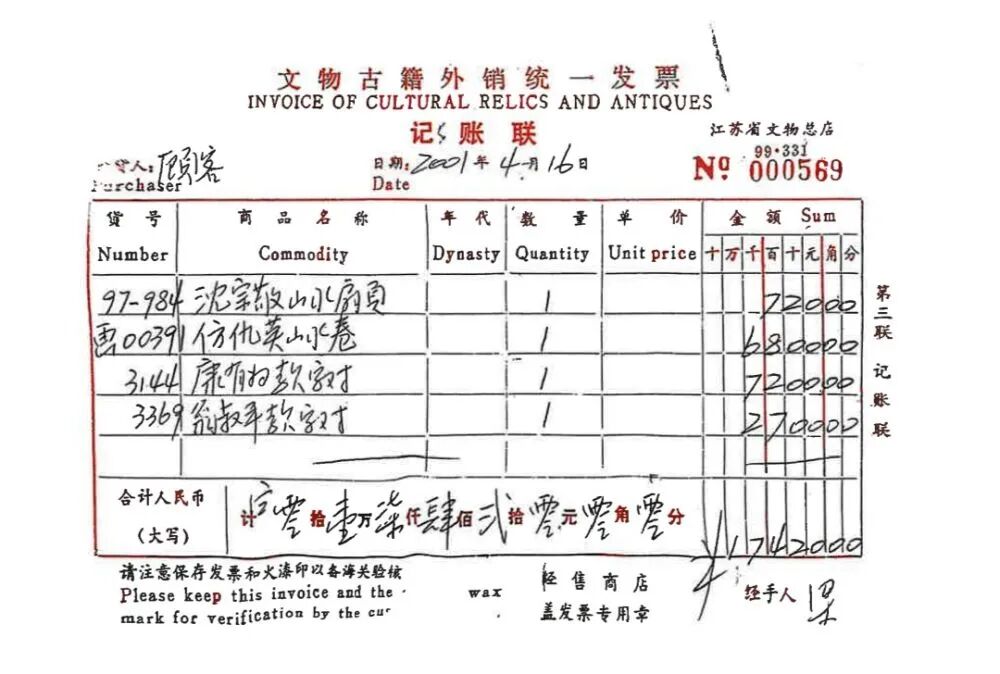 文物古籍外销统一发票
INVOICE OF CULTURAL RELICS AND ANTIQUES
记账联
江苏省文物总店
99·331
货人: 顾客 日期: 2001年4月16日 Nº 000569
Purchaser Date
货号 商品名称 年代 数量 单价 金额 Sum
Number Commodity Dynasty Quantity Unit price 十万千百十元角分
97-984 沈宗敬山水扇頁 1 72000
画00391 仿仇英山水卷 1 680000
3144 康有为款字对 1 720000
3369 翁叔平款字对 1 270000
第三联 记账联
合计人民币 计零拾壹万柒仟肆佰贰拾零元零角零分
(大写) ¥1742000
请注意保存发票和火漆印以备海关验核 经售商店 经手人
Please keep this invoice and the wax 盖发票专用章
mark for verification by the